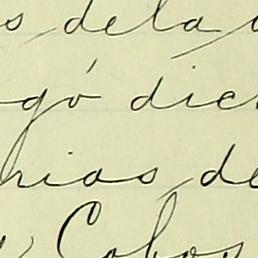 s dela
gó dic
rias de
y Cobos